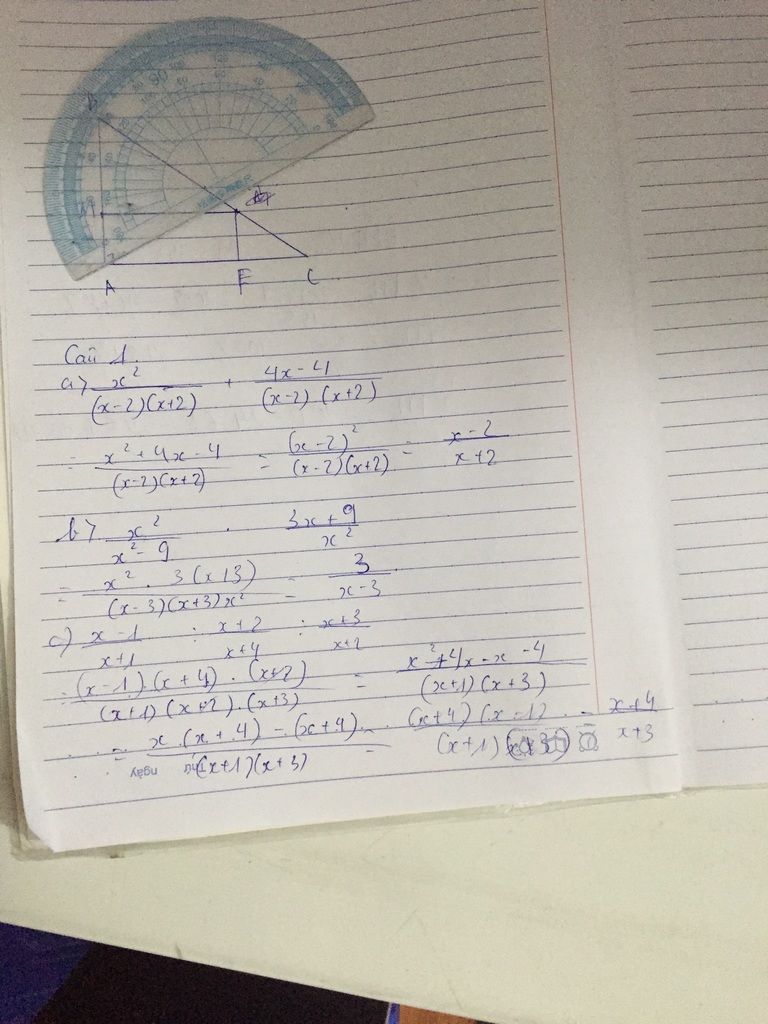 B
A F C
Câu 1.
a) x²/((x-2)(x+2)) + (4x-4)/((x-2).(x+2))
= (x²+4x-4)/((x-2)(x+2)) = (x-2)²/((x-2)(x+2)) = (x-2)/(x+2)
b) x²/(x²-9) . (3x+9)/x²
= (x².3(x+3))/((x-3)(x+3)x²) = 3/(x-3)
c) (x-1)/(x+1) : (x+2)/(x+4) : (x+3)/(x+2)
= ((x-1).(x+4).(x+2))/((x+1)(x+2).(x+3)) = (x²+4x-x-4)/((x+1)(x+3))
= (x.(x+4)-(x+4))/((x+1)(x+3)) = ((x+4)(x-1))/((x+1)(x+3)) = (x+4)/(x+3)
Thứ ngày